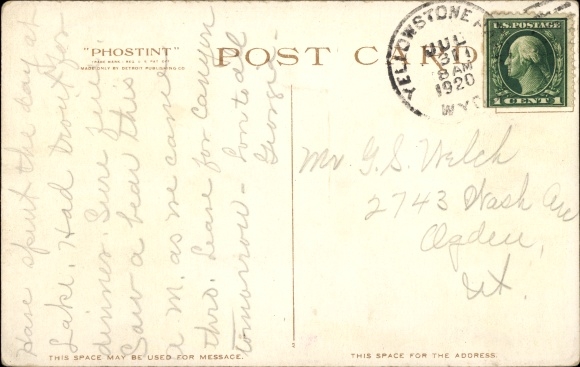 "PHOSTINT"
TRADE MARK - REG. U.S. PAT. OFF.
MADE ONLY BY DETROIT PUBLISHING CO.
POST CARD
YELLOWSTONE
JUL
31
8 AM
1920
WYO
U.S. POSTAGE
1 CENT 1
Have spent the day at
Lake. Had trout for
dinner. Sure fine
Saw a bear this
a M. as we came
thro. Leave for Canyon
tomorrow - Love to all
George -
Mr G. S. Welch
2743 Wash Ave
Ogden,
Ut.
THIS SPACE MAY BE USED FOR MESSAGE.
THIS SPACE FOR THE ADDRESS.